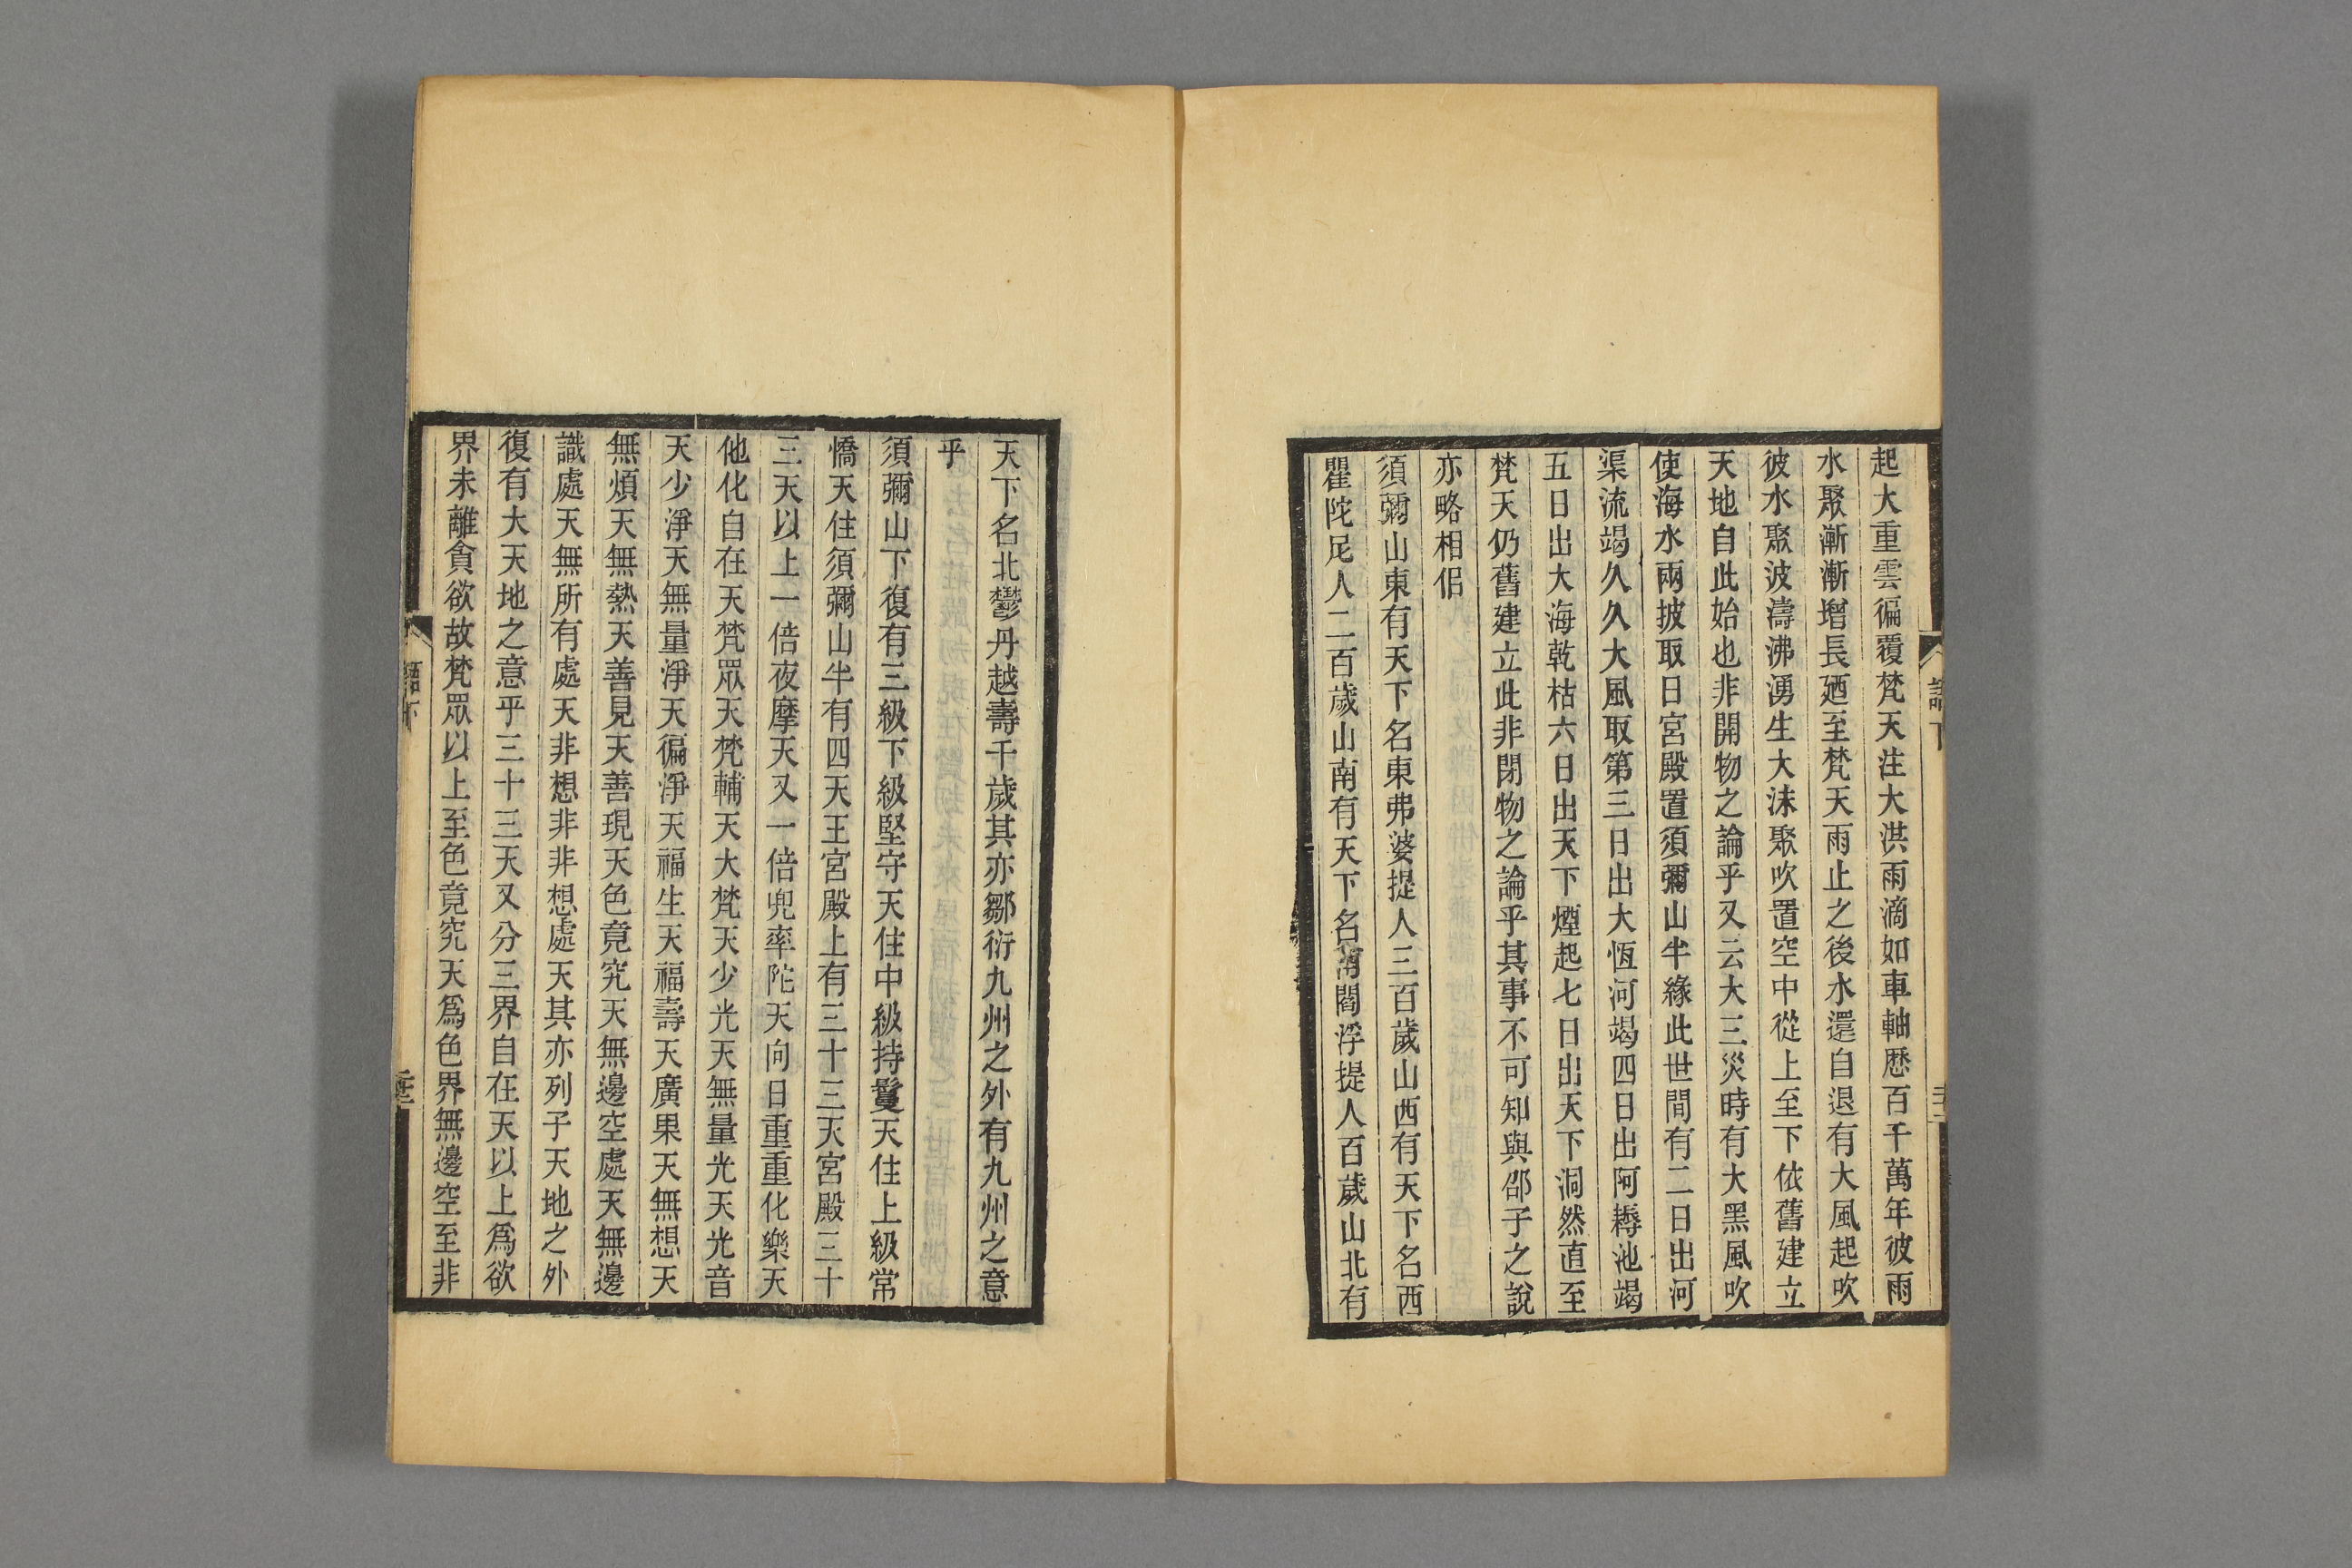 起大重雲徧覆梵天注大洪雨滴如車軸歷百千萬年彼雨
水聚漸漸增長廼至梵天雨止之後水還自退有大風起吹
彼水聚波濤沸湧生大沫聚吹置空中從上至下依舊建立
天地自此始也非開物之論乎又云大三災時有大黑風吹
使海水兩披取日宮殿置須彌山半緣此世間有二日出河
渠流竭久久大風取第三日出大恆河竭四日出阿耨池竭
五日出大海乾枯六日出天下煙起七日出天下洞然直至
梵天仍舊建立此非閉物之論乎其事不可知與邵子之說
亦略相侣
須彌山東有天下名東弗婆提人三百歲山西有天下名西
瞿陀尼人二百歲山南有天下名南閻浮提人百歲山北有
天下名北鬱丹越壽千歲其亦鄒衍九州之外有九州之意
乎
須彌山下復有三級下級堅守天住中級持鬘天住上級常
憍天住須彌山半有四天王宮殿上有三十三天宮殿三十
三天以上一倍夜摩天又一倍兜率陀天向日重重化樂天
他化自在天梵眾天梵輔天大梵天少光天無量光天光音
天少淨天無量淨天徧淨天福生天福壽天廣果天無想天
無煩天無熱天善見天善現天色竟究天無邊空處天無邊
識處天無所有處天非想非非想處天其亦列子天地之外
復有大天地之意乎三十三天又分三界自在天以上爲欲
界未離貪欲故梵眾以上至色竟究天爲色界無邊空至非